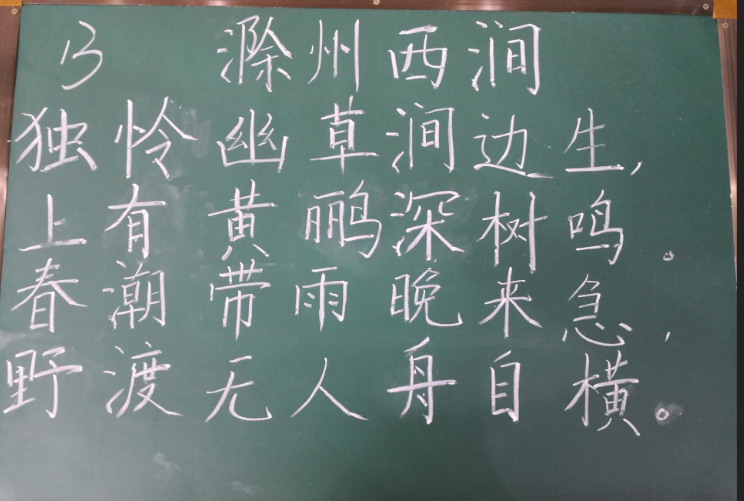 13 滁州西涧
独怜幽草涧边生,
上有黄鹂深树鸣。
春潮带雨晚来急,
野渡无人舟自横。